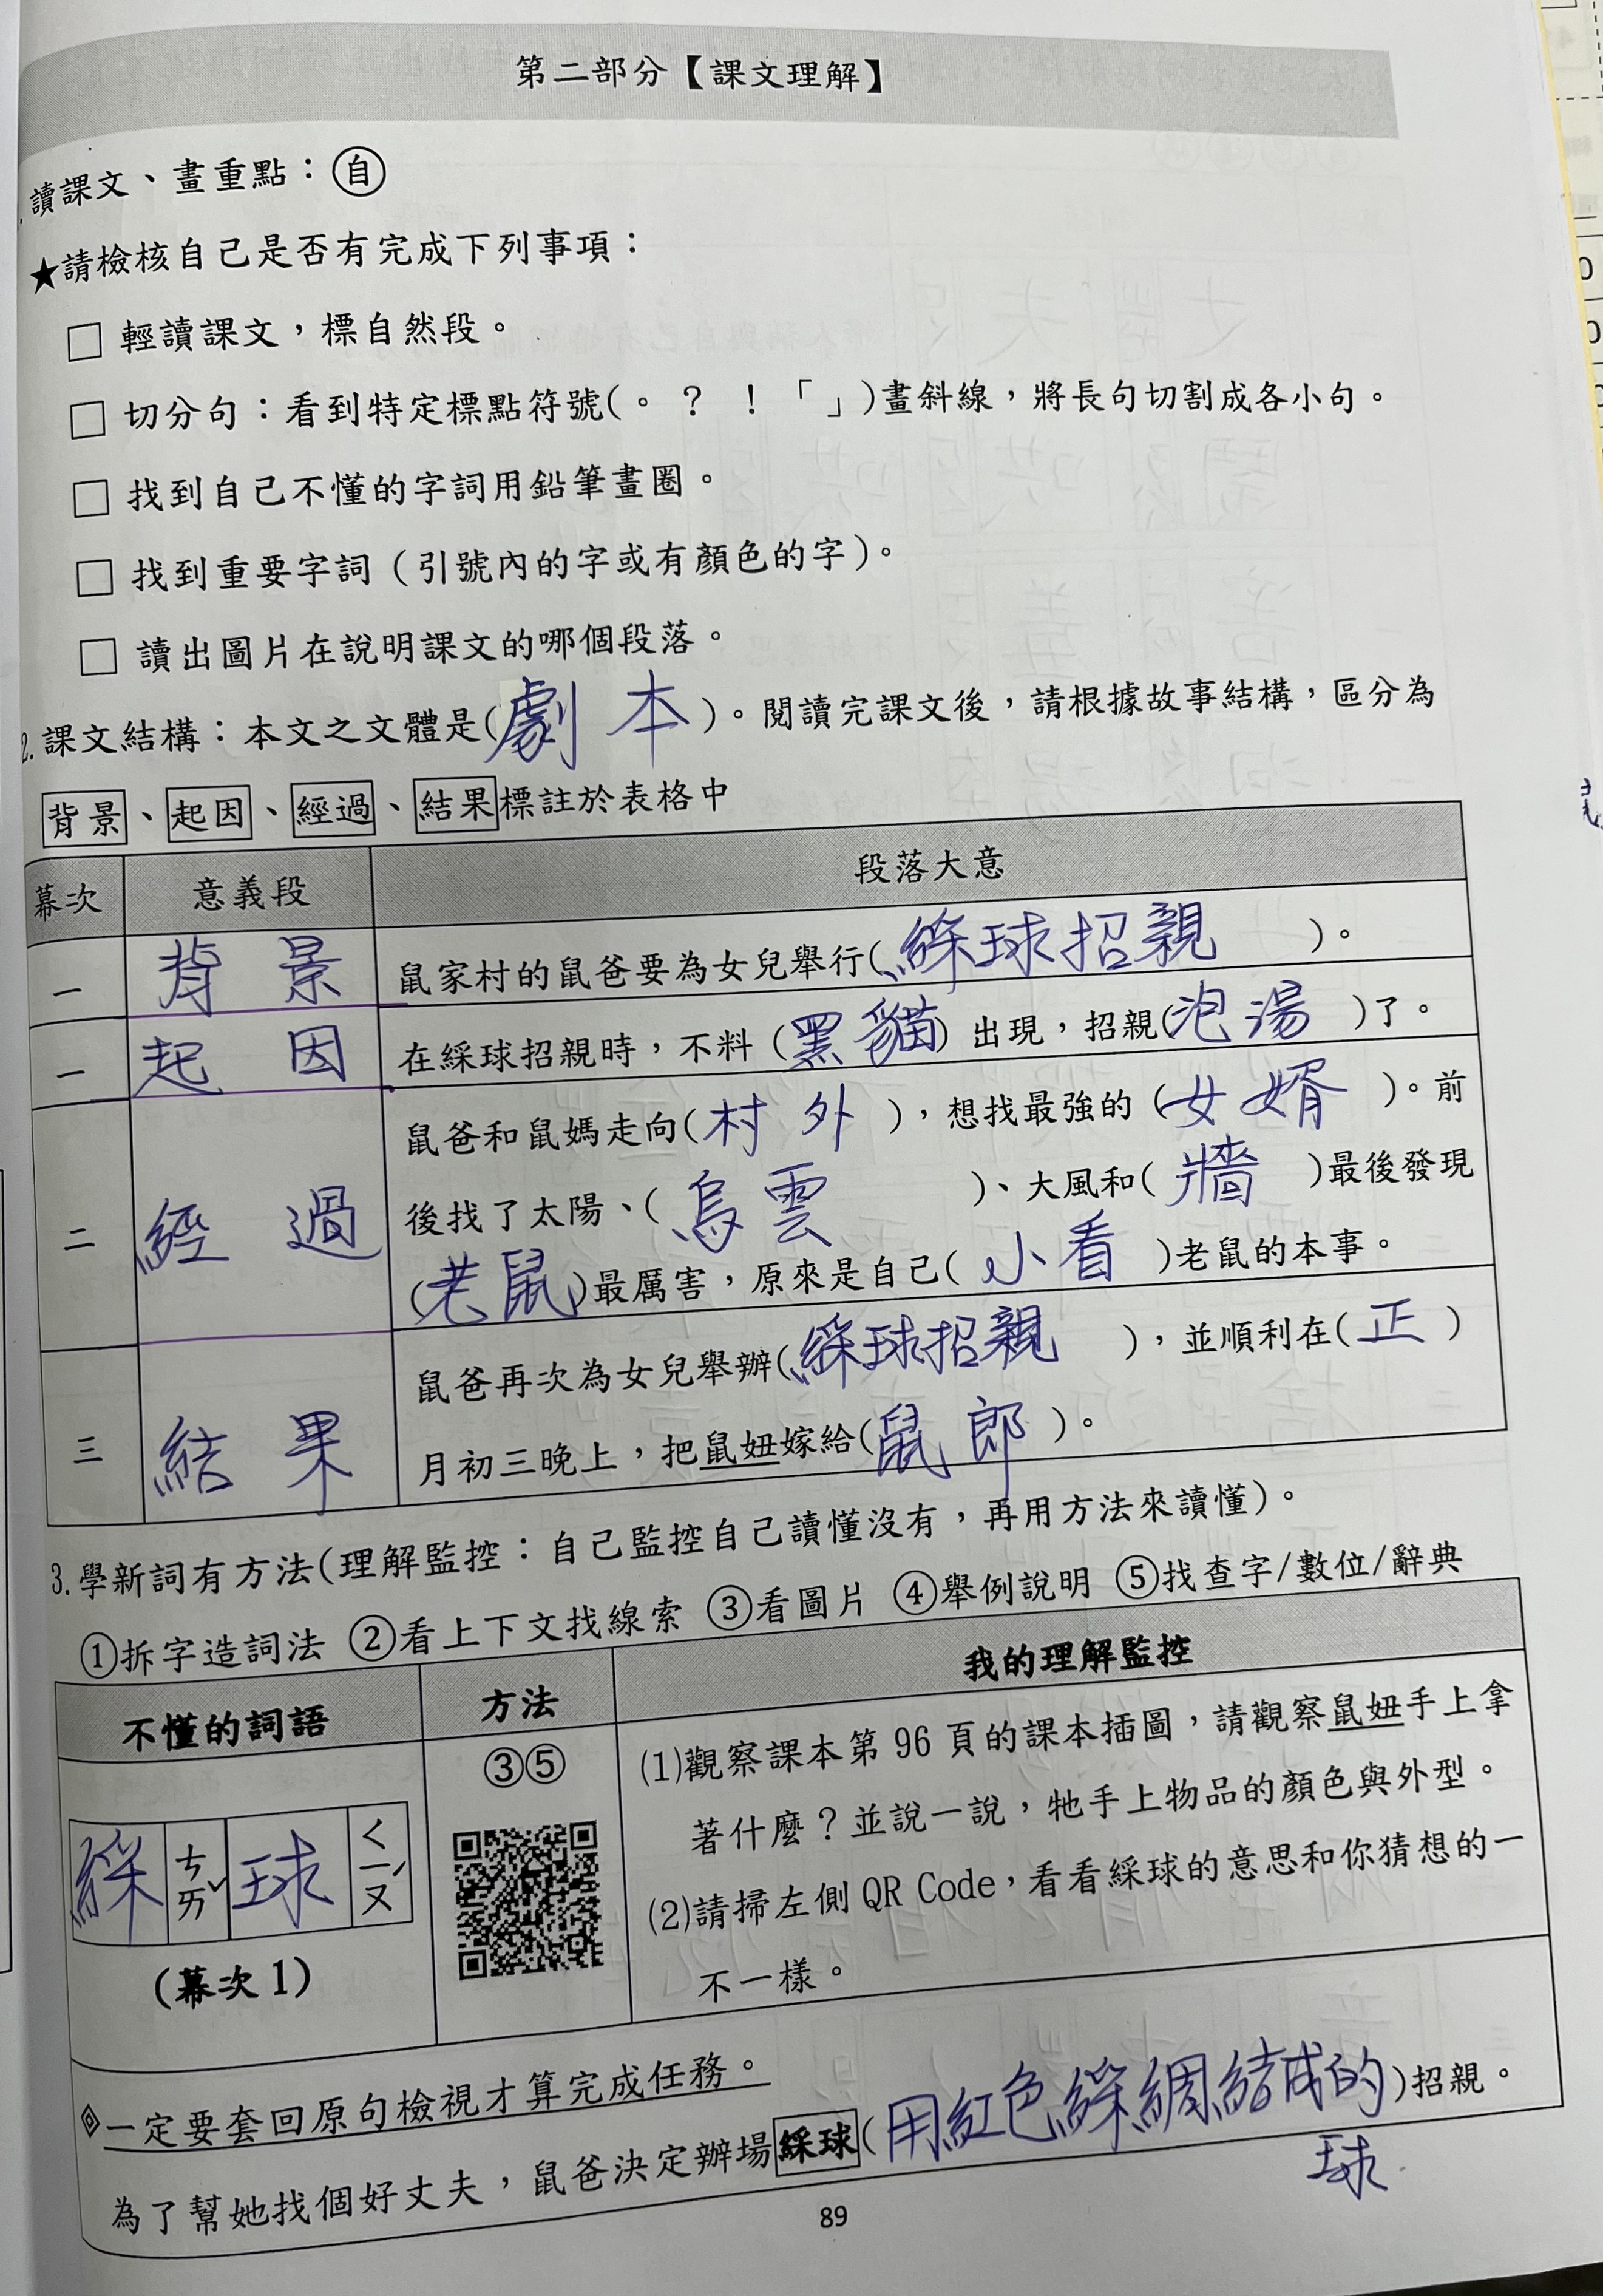 第二部分【課文理解】
.讀課文、畫重點：自
★請檢核自己是否有完成下列事項：
□ 輕讀課文，標自然段。
□ 切分句：看到特定標點符號(。？！「」)畫斜線，將長句切割成各小句。
□ 找到自己不懂的字詞用鉛筆畫圈。
□ 找到重要字詞（引號內的字或有顏色的字）。
□ 讀出圖片在說明課文的哪個段落。
2.課文結構：本文之文體是(劇本)。閱讀完課文後，請根據故事結構，區分為
背景、起因、經過、結果標註於表格中
幕次 意義段 段落大意
一 背景 鼠家村的鼠爸要為女兒舉行(綵球招親)。
一 起因 在綵球招親時，不料（黑貓）出現，招親(泡湯)了。
鼠爸和鼠媽走向(村外)，想找最強的(女婿)。前
二 經過 後找了太陽、(烏雲)、大風和(牆)最後發現
(老鼠)最厲害，原來是自己(小看)老鼠的本事。
鼠爸再次為女兒舉辦(綵球招親)，並順利在(正)
三 結果 月初三晚上，把鼠妞嫁給(鼠郎)。
3.學新詞有方法(理解監控：自己監控自己讀懂沒有，再用方法來讀懂)。
①拆字造詞法 ②看上下文找線索 ③看圖片 ④舉例說明 ⑤找查字/數位/辭典
不懂的詞語 方法 我的理解監控
綵 ㄘㄞˇ 球 ㄑㄧㄡˊ
(幕次1)
③⑤
(1)觀察課本第96頁的課本插圖，請觀察鼠妞手上拿
著什麼？並說一說，牠手上物品的顏色與外型。
(2)請掃左側QR Code，看看綵球的意思和你猜想的一
不一樣。
一定要套回原句檢視才算完成任務。
為了幫她找個好丈夫，鼠爸決定辦場綵球(用紅色綵綢結成的)招親。
球
89